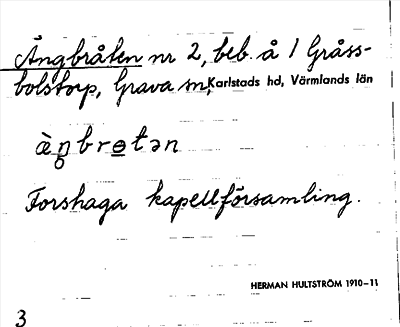 Ängbråten nr 2, beb. å 1 Gråss-
bolstorp, Grava sn, Karlstads hd, Värmlands län
àŋbrɵtən
Forshaga kapellförsamling.
HERMAN HULTSTRÖM 1910-11
3